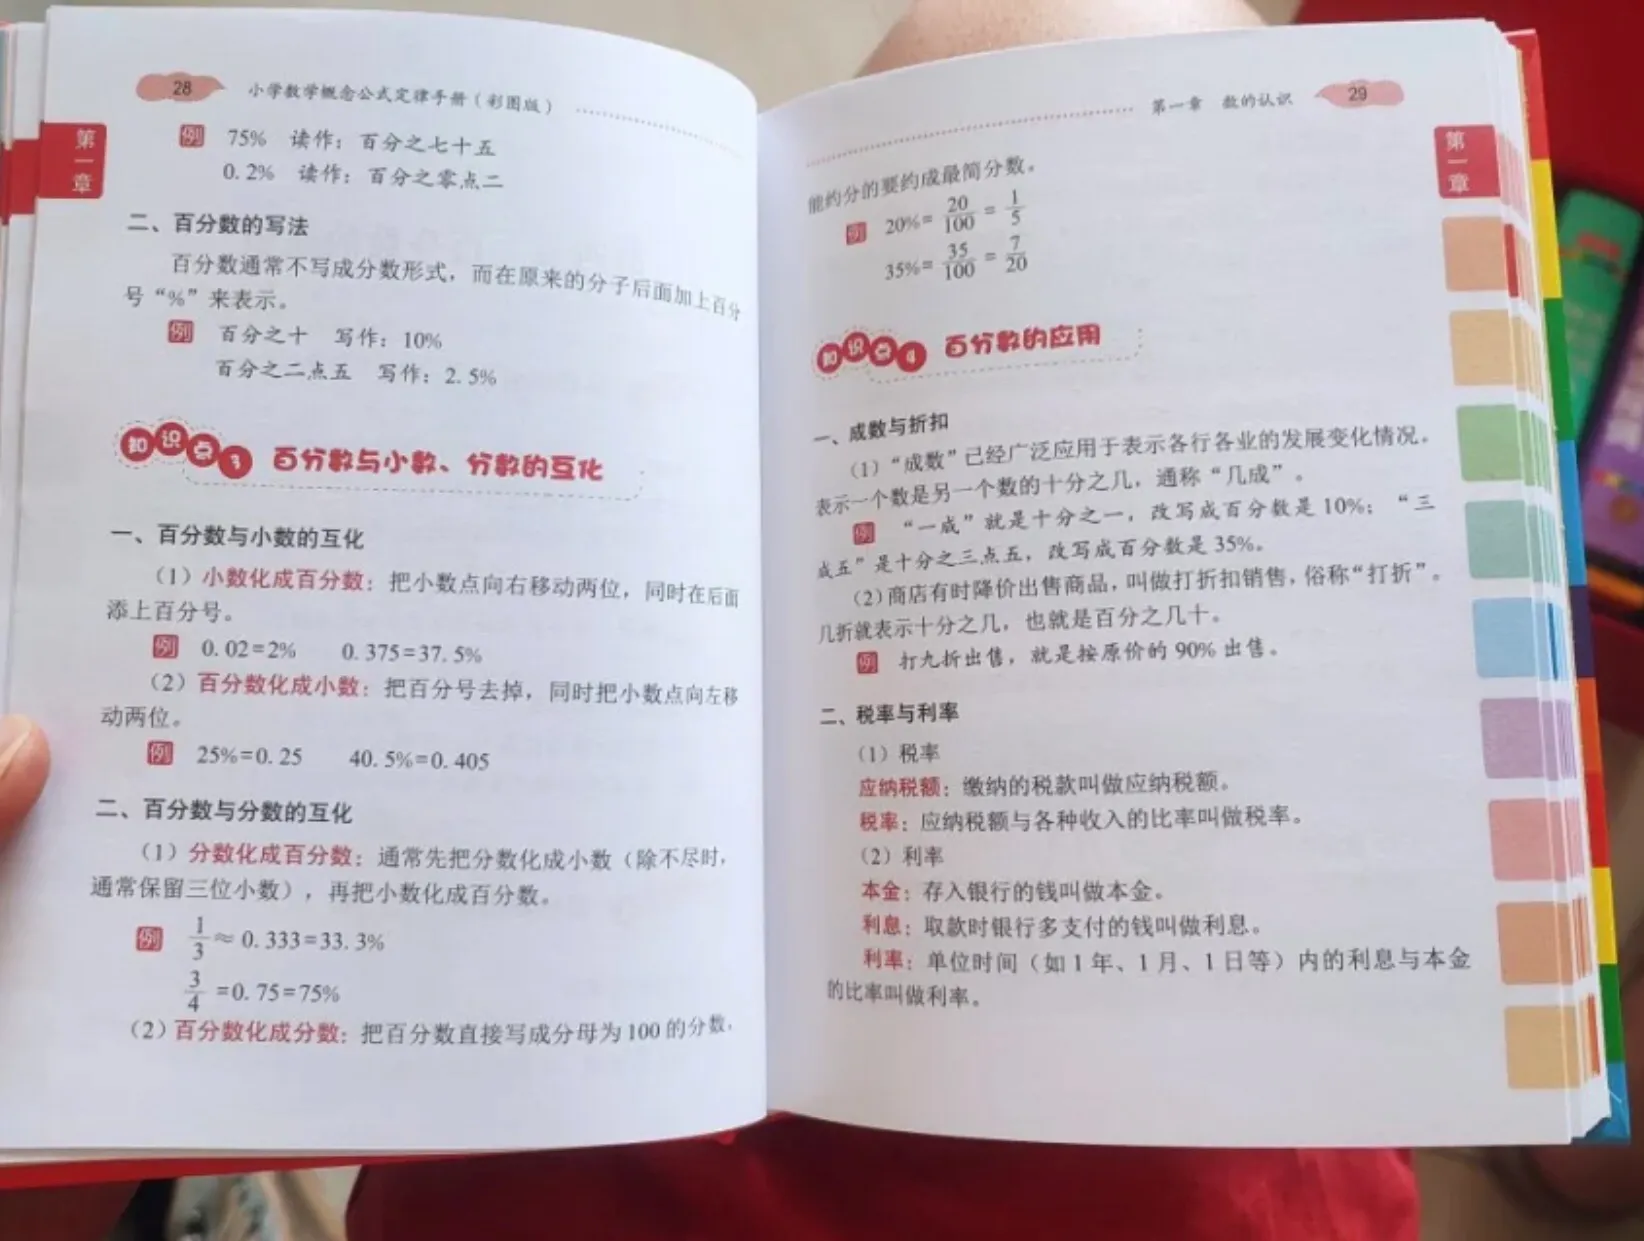 28 小学数学概念公式定律手册（彩图版）
第一章
例 75% 读作：百分之七十五
0.2% 读作：百分之零点二
二、百分数的写法
百分数通常不写成分数形式，而在原来的分子后面加上百分
号“%”来表示。
例 百分之十 写作：10%
百分之二点五 写作：2.5%
知识点3 百分数与小数、分数的互化
一、百分数与小数的互化
（1）小数化成百分数：把小数点向右移动两位，同时在后面
添上百分号。
例 0.02=2% 0.375=37.5%
（2）百分数化成小数：把百分号去掉，同时把小数点向左移
动两位。
例 25%=0.25 40.5%=0.405
二、百分数与分数的互化
（1）分数化成百分数：通常先把分数化成小数（除不尽时，
通常保留三位小数），再把小数化成百分数。
例 1/3≈0.333=33.3%
3/4=0.75=75%
（2）百分数化成分数：把百分数直接写成分母为100的分数，
第一章 数的认识 29
第一章
能约分的要约成最简分数。
例 20%=20/100=1/5
35%=35/100=7/20
知识点4 百分数的应用
一、成数与折扣
（1）“成数”已经广泛应用于表示各行各业的发展变化情况。
表示一个数是另一个数的十分之几，通称“几成”。
例 “一成”就是十分之一，改写成百分数是10%；“三
成五”是十分之三点五，改写成百分数是35%。
（2）商店有时降价出售商品，叫做打折扣销售，俗称“打折”。
几折就表示十分之几，也就是百分之几十。
例 打九折出售，就是按原价的90%出售。
二、税率与利率
（1）税率
应纳税额：缴纳的税款叫做应纳税额。
税率：应纳税额与各种收入的比率叫做税率。
（2）利率
本金：存入银行的钱叫做本金。
利息：取款时银行多支付的钱叫做利息。
利率：单位时间（如1年、1月、1日等）内的利息与本金
的比率叫做利率。